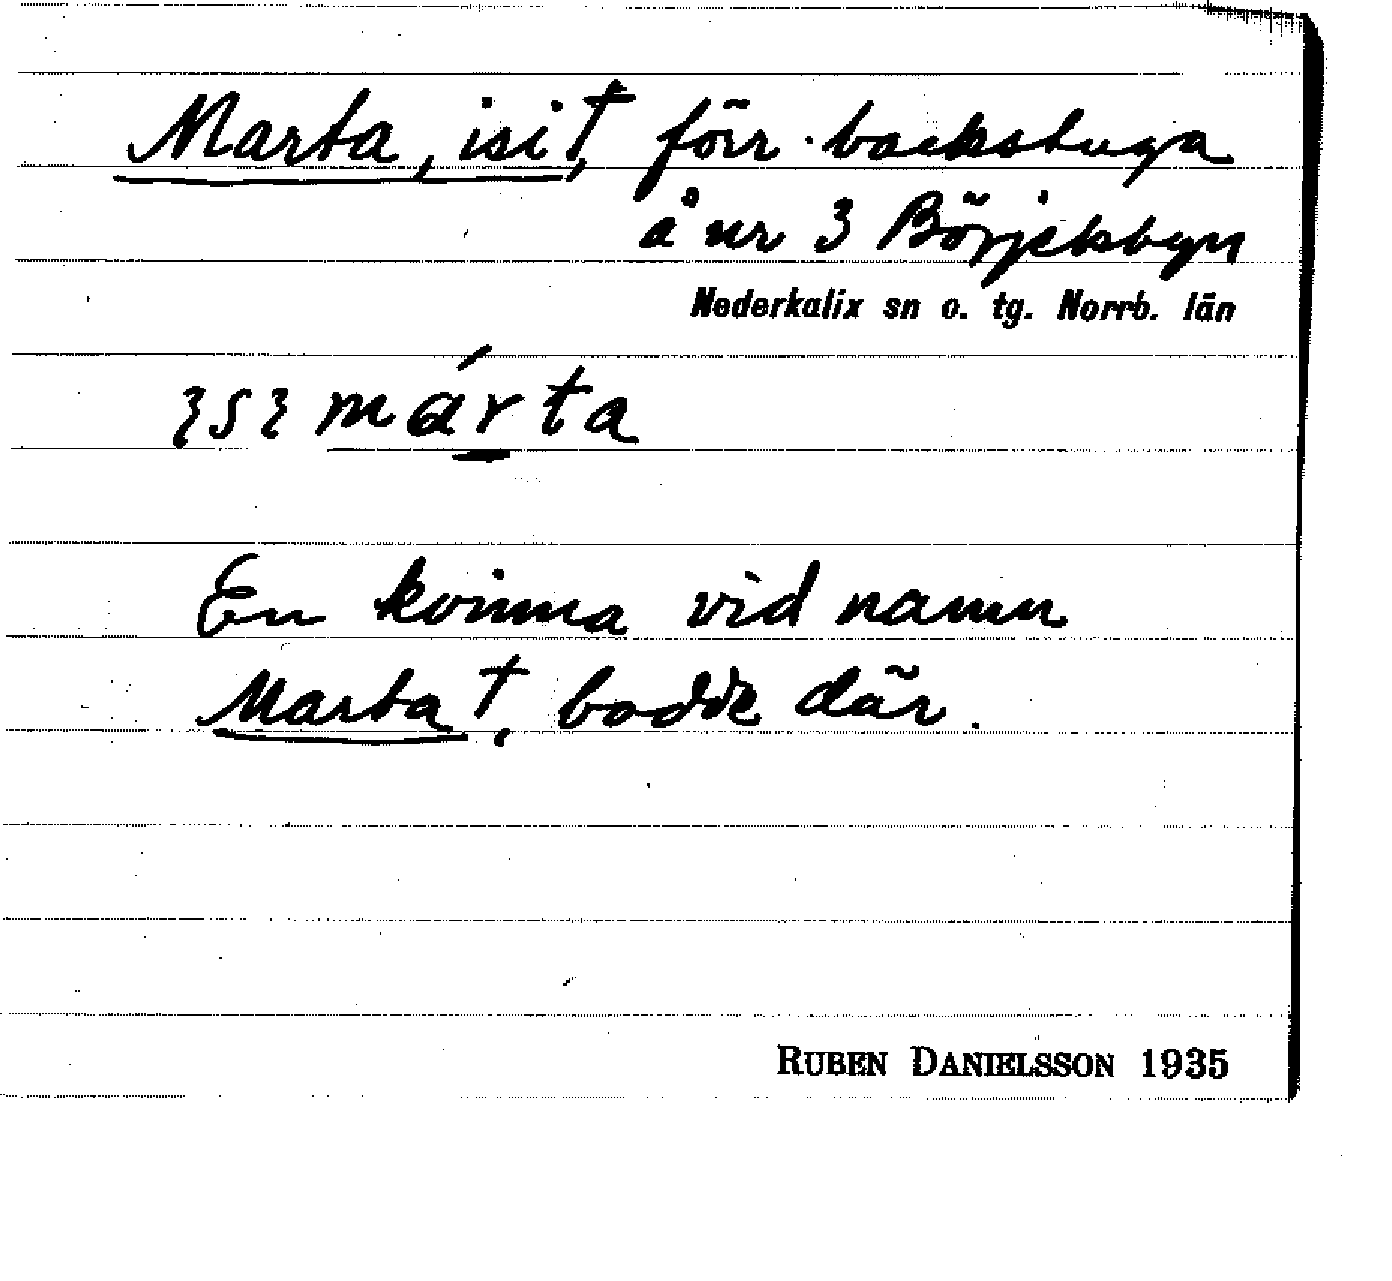 Marta, isit†, förr backstuga
å nr 3 Börjelsbyn
Nederkalix sn o. tg. Norrb. län
márta
En kvinna vid namn
Marta†, bodde där.
RUBEN DANIELSSON 1935